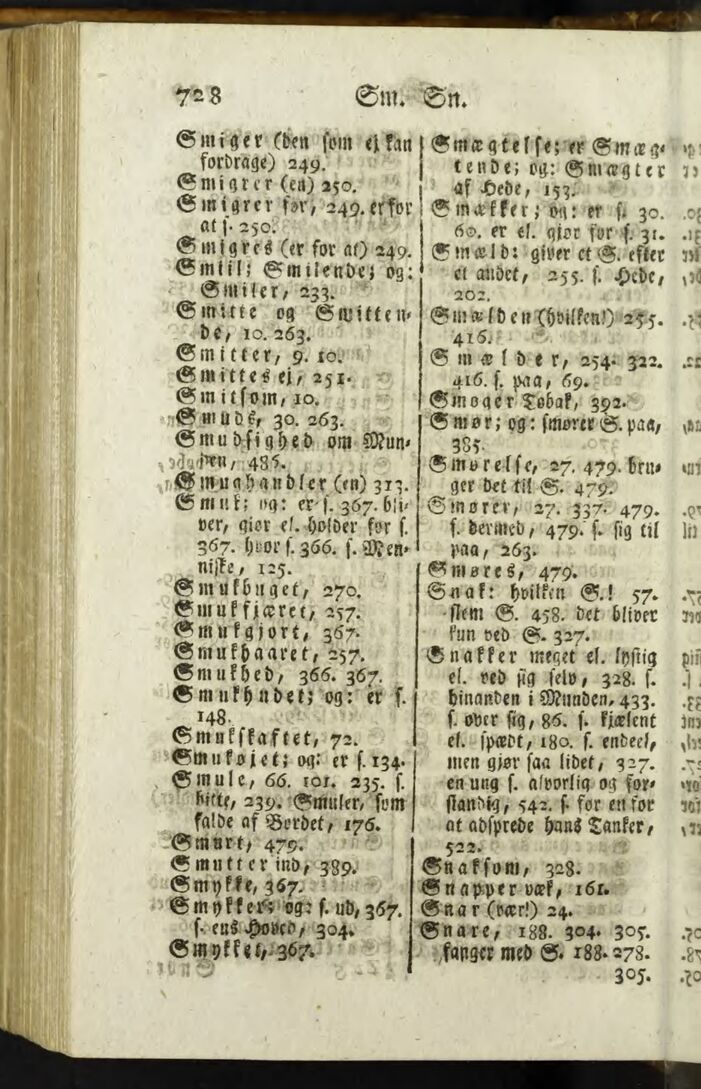 728
Sm. Sn.
Smiger (den som ej kan
fordrage) 249.
Smigrer (en) 250.
Smigrer for, 249. er for
at s. 250.
Smigres (er for at) 249.
Smiil; Smilende; og:
Smiler, 233.
Smitte og Smitten-
de, 10. 263.
Smitter, 9. 10.
Smittes ej, 251.
Smitsom, 10.
Smuds, 30. 263.
Smudsighed om Mun-
den, 485.
Smughandler (en) 313.
Smuk; og: er s. 367. bli-
ver, giør el. holder for s.
367. hvor s. 366. s. Men-
niske, 125.
Smukbuget, 270.
Smukfjæret, 257.
Smukgjort, 367.
Smukhaaret, 257.
Smukhed, 366. 367.
Smukhudet; og: er s.
148.
Smukskaftet, 72.
Smukøjet; og: er s. 134.
Smule, 66. 101. 235. s.
bitte, 239. Smuler, som
falde af Bordet, 176.
Smurt, 479.
Smutter ind, 389.
Smykke, 367.
Smykker; og: s. ud, 367.
s. ens Hoved, 304.
Smykket, 367.
Smægtelse; er Smæg-
tende; og: Smægter
af Hede, 153.
Smækker; og: er s. 30.
60. er el. gjør for s. 31.
Smæld: giver et S. efter
et andet, 255. s. Hede,
202.
Smælden (hvilken!) 255.
416.
Smælder, 254. 322.
416. s. paa, 69.
Smøger Tobak, 392.
Smør; og: smører S. paa,
385.
Smørelse, 27. 479. bru-
ger det til S. 479.
Smører, 27. 337. 479.
s. dermed, 479. s. sig til
paa, 263.
Smøres, 479.
Snak: hvilken S.! 57.
slem S. 458. det bliver
kun ved S. 327.
Snakker meget el. lystig
el. ved sig selv, 328. s.
hinanden i Munden, 433.
s. over sig, 86. s. kjælent
el. spædt, 180. s. endeel,
men gjør saa lidet, 327.
en ung s. alvorlig og for-
standig, 542. s. for en for
at adsprede hans Tanker,
522.
Snaksom, 328.
Snapper væk, 161.
Snar (vær!) 24.
Snare, 188. 304. 305.
fanger med S. 188. 278.
305.